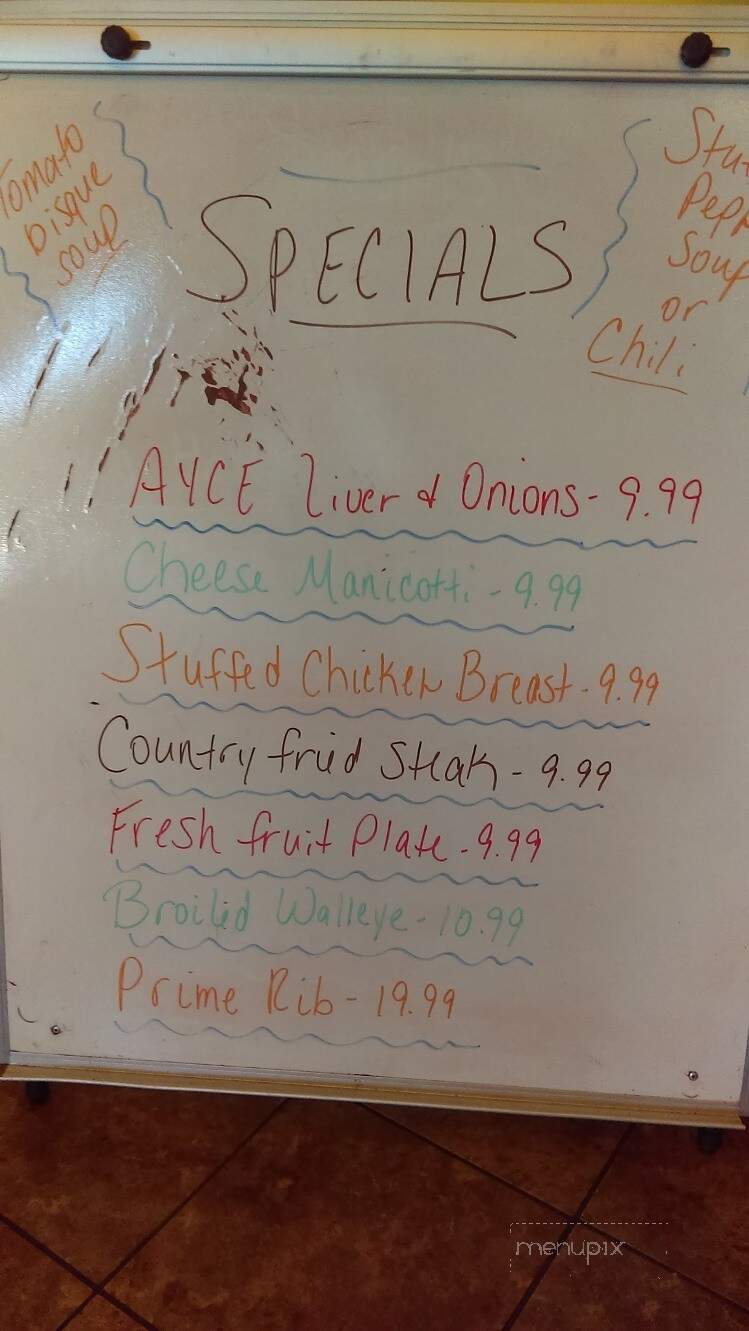 Tomato
bisque
soup
Soup
or
Chili
SPECIALS
AYCE Liver & Onions - 9.99
Cheese Manicotti - 9.99
Stuffed Chicken Breast - 9.99
Country fried Steak - 9.99
Fresh fruit Plate - 9.99
Broiled Walleye - 10.99
Prime Rib - 19.99
menupix